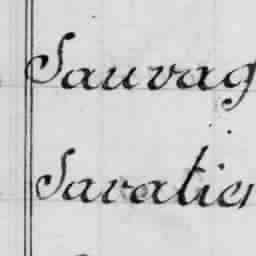 Sauvag
Savatier